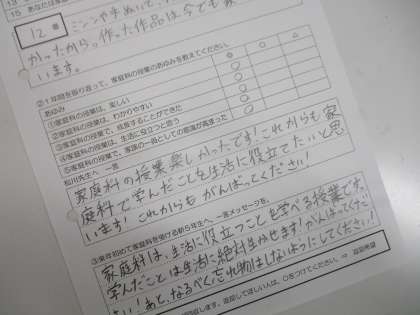 15 あなたは家
12 番
ミシンや手ぬいで、
かったから。作った作品は今でも家
います。
②１年間を振り返って、家庭科の授業のあゆみを教えてください。
あゆみ ◎ ○ △
①家庭科の授業は、楽しい ○
②家庭科の授業は、わかりやすい ○
③家庭科の授業で、成長することができた ○
④家庭科の授業は、生活に役立つと思う ○
⑤家庭科の授業で、家族の一員としての意識が高まった ○
松川先生へ 一言
家庭科の授業楽しかったです！これからも家
庭科で学んだことを生活に役立てたいと思
います！これからもがんばってください！
③来年初めて家庭科を受ける新５年生へ 一言メッセージを。
家庭科は、生活に役立つことを学べる授業です。
学んだことは生活に絶対生かせます！がんばってくだ
さい！あと、なるべく忘れ物はしないほうにしてください！
返却してほしい人は、○をつけてください。⇒ 返却希望